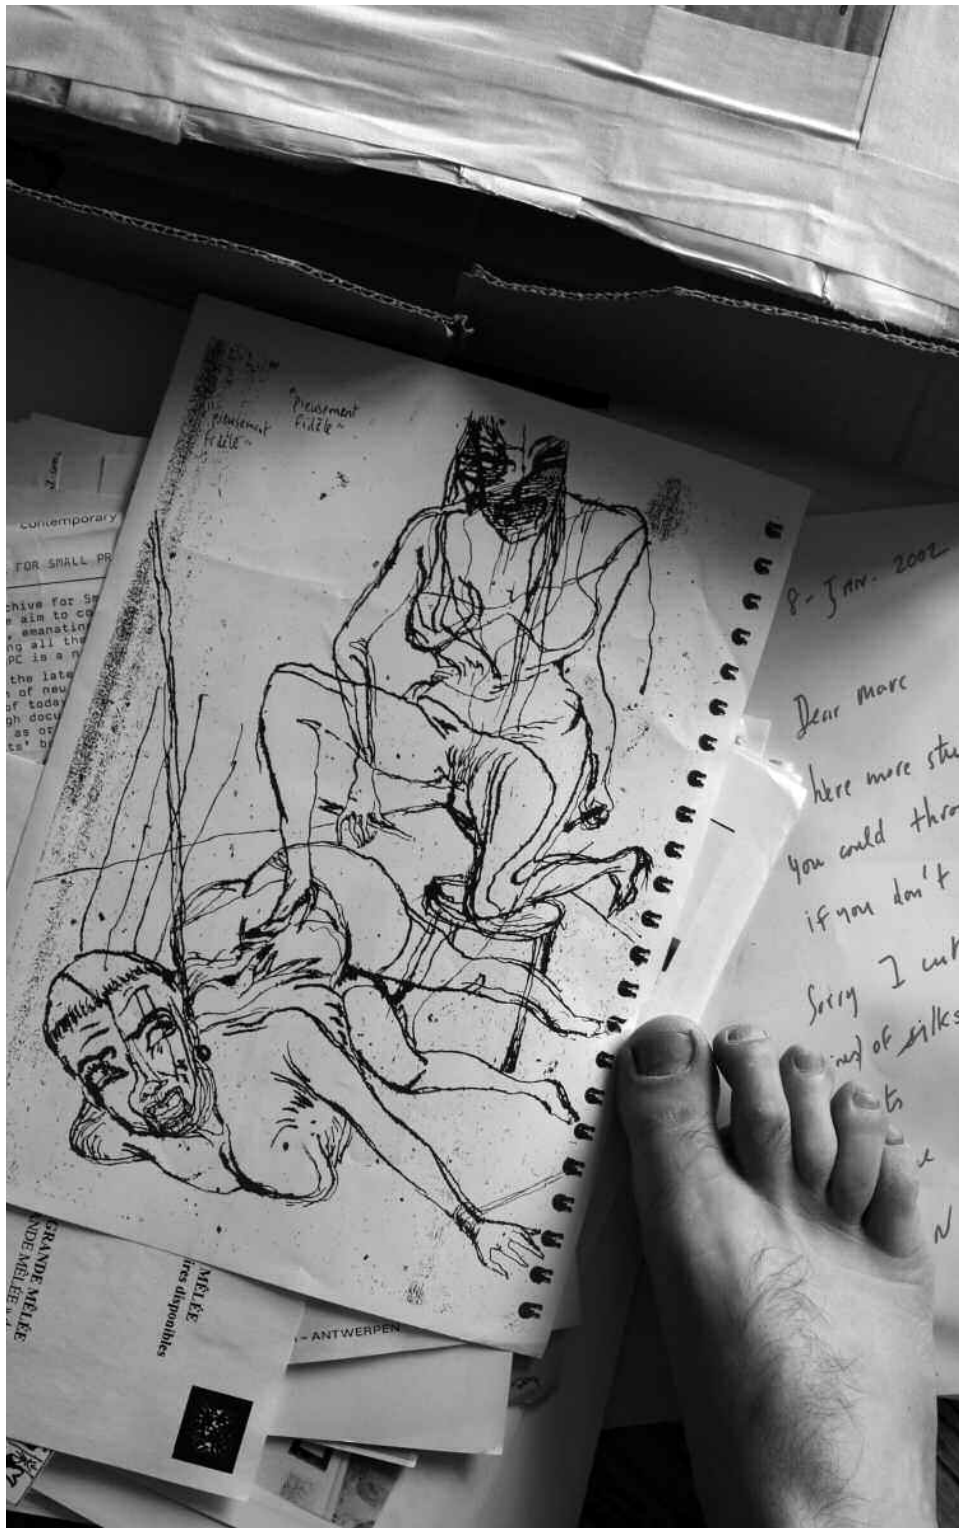 "pieusement
fidèle~
pieusement
fidèle~
contemporary
FOR SMALL PR
chive for Sm
aim to co
, emanating
ng all the
PC is a n
the late
of new
of today
gh docu
as or
8 - JAN. 2002
Dear marc
here more stu
you could thro
if you don't
Sorry I
of silks
ts
N
GRANDE MÊLÉE
NDE MÊLÉE
MÊLÉE
ires disponibles
- ANTWERPEN